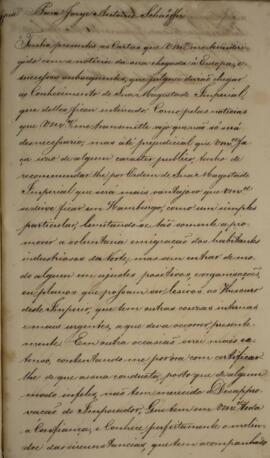 Para Jorge Antonio Schäffer
Tenho presentes as Cartas que Vmce me tem diri-
gido com a noticia da sua chegada à Europa, e
successos subsequentes, que julguei devia chegar
ao Conhecimento de Sua Magestade Imperial,
que delles ficou inteirado. Como pelas noticias
que Vmce me transmitte vejo que não só não
desnecessario, mas até prejudicial que Vmce fa-
ça uso de algum caracter publico, tenho de
recommendar-lhe por Ordem de Sua Magestade
Imperial que será mais vantajoso que Vmce
se deixe ficar em Hamburgo, como um simples
particular, limitando-se tão somente a pro-
mover a voluntaria emigração dos habitantes
industriosos do Norte, mas sem entrar de mo-
do algum em ajustes positivos, e organisações,
ou planos que possam ser lesivos ao Thesouro
deste Imperio, que tem outras cousas internas
e mais urgentes, a que deva occorrer presente-
mente. Em outra occasião irei mais ex-
tenso, contentando-me por ora com certificar-
lhe de que a sua conducta, posto que de algum
modo infeliz, não tem merecido a Desappro-
vação do Imperador, Que tem em Vmce toda
a Confiança, e Conhece perfeitamente o melin-
droso das circunstancias que tem acompanhado